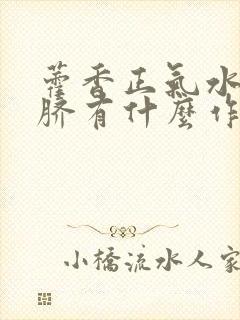 藿香正氣水
臍有什麼作
小橋流水人家